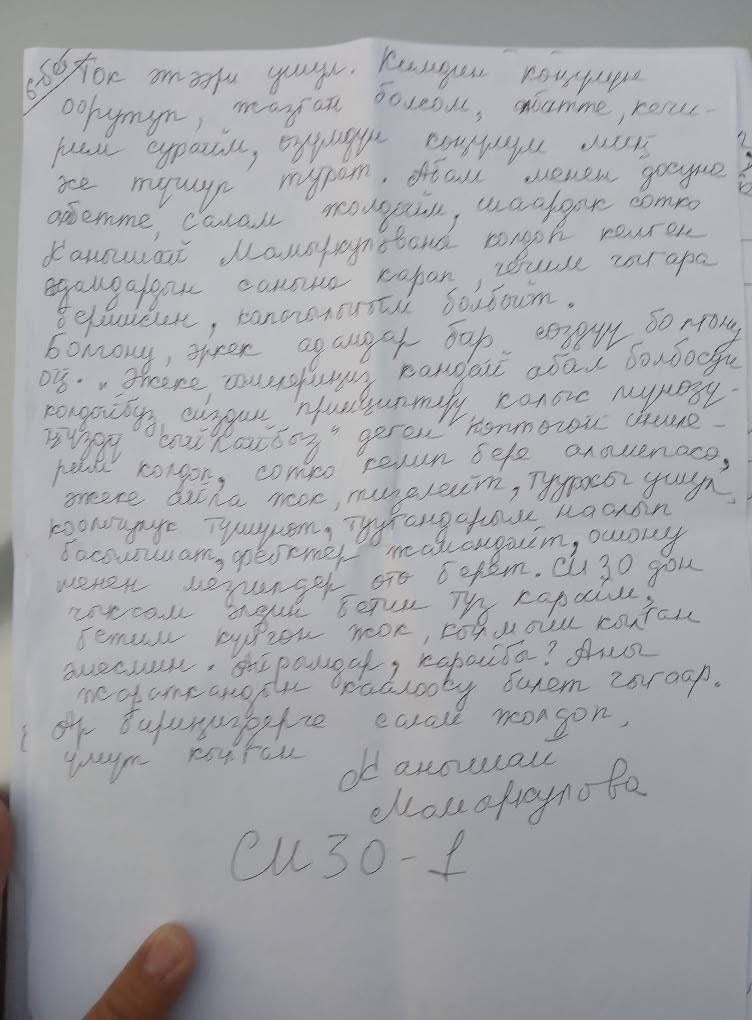 6-бет
Ток этээри ушул. Кимдин көңүлүн
оорутуп, жазган болсом, албетте, кечи-
рим сурайм, өзүмдүн көңүлүм миң
же түшүп турат. Абам менен досуна
албетте, салам жолдойм, шаардык сотко
Канышай Мамыркулована колдоп келген
адамдардын санына карап, чечим чыгара
бермиксин, капачылыгым болбойт.
Болгону, эркек адамдар бар сөздүү болгону
оң. "Эжеке, чечмериңиз кандай абал болбосун
колдойбуз, сиздин принциптүү, калыс мүнөзү-
ңүздү сыйлайбыз" деген көптөгөн иниле-
рим колдоп, сотко келип бере алышпаса,
эжеке айла жок, тизелейт, турмуш ушул,
коомчулук түшүнөт, туугандарым наалып
басылышат, фейктер жамандайт, ошону
менен мезгилдер өтө берет. СИЗО дон
чыксам элдин бетин туз карайм,
бетим күйгөн жок, кылмыш кылган
эмесмин. Айрымдар, карайбы? Аны
жараткандын каалоосу билет чыгаар.
Ар бириңиздерге салам жолдоп,
үмүт кылган
Канышай
Мамыркулова
СИЗО-1